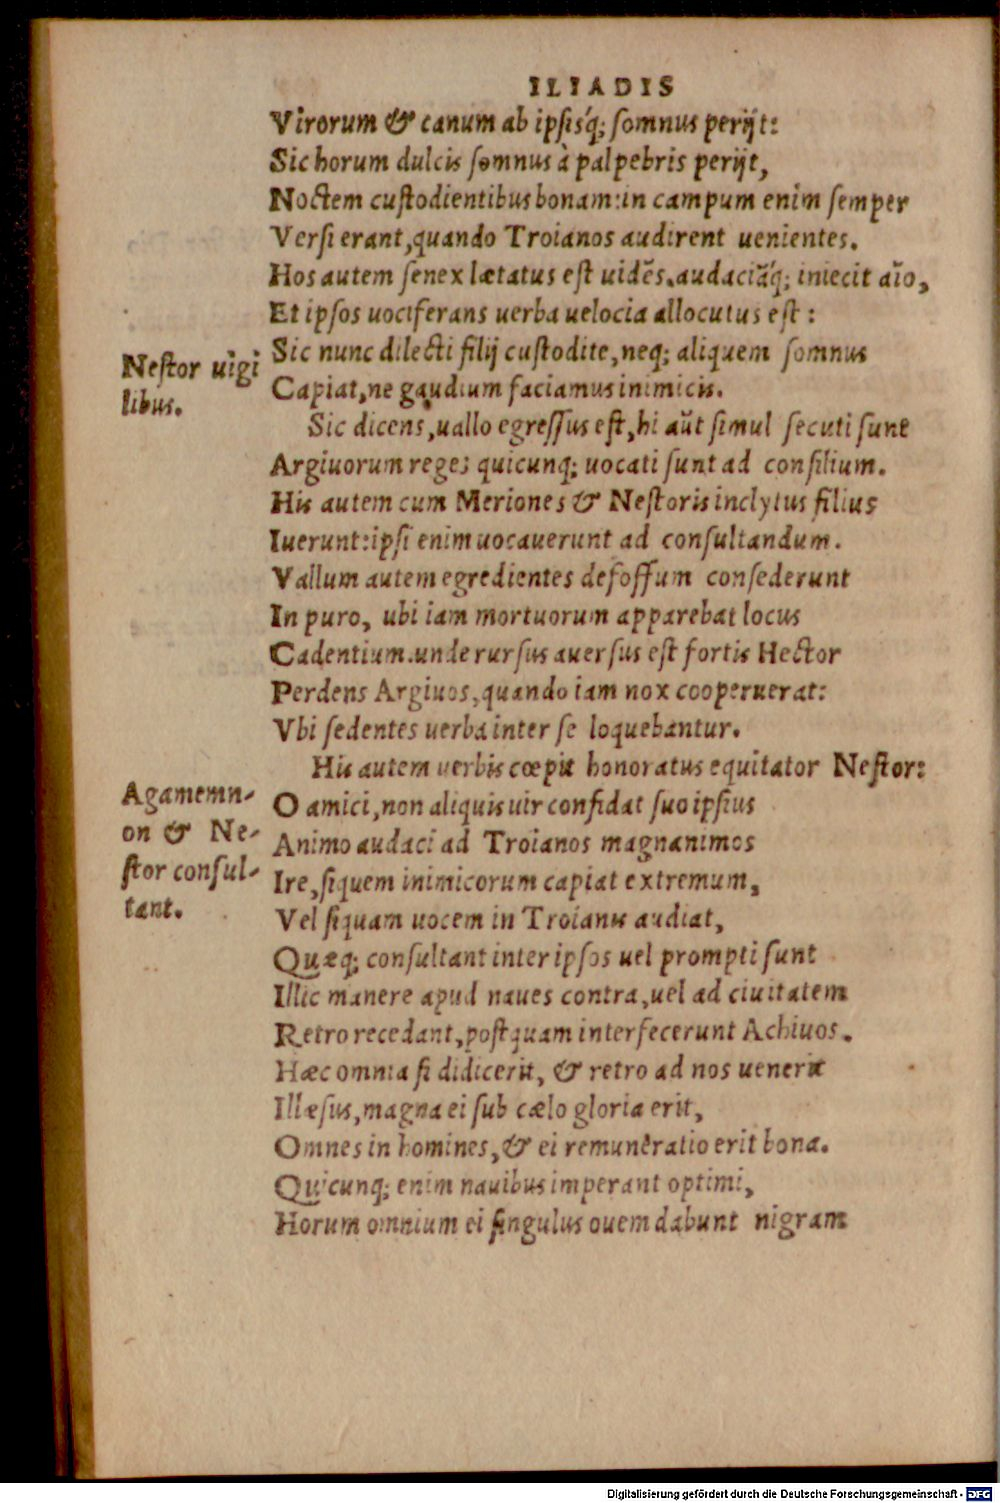 ILIADIS
Virorum & canum ab ipsisq́; somnus perijt:
Sic horum dulcis somnus à palpebris perijt,
Noctem custodientibus bonam: in campum enim semper
Versi erant, quando Troianos audirent uenientes.
Hos autem senex lætatus est uidẽs. audaciãq́; iniecit aĩo,
Et ipsos uociferans uerba uelocia allocutus est:
Nestor uigi
libus.
Sic nunc dilecti filij custodite, neq; aliquem somnus
Capiat, ne gaudium faciamus inimicis.
Sic dicens, uallo egressus est, hi aũt simul secuti sunt
Argiuorum reges quicunq; uocati sunt ad consilium.
His autem cum Meriones & Nestoris inclytus filius
Iuerunt: ipsi enim uocauerunt ad consultandum.
Vallum autem egredientes defossum consederunt
In puro, ubi iam mortuorum apparebat locus
Cadentium. unde rursus auersus est fortis Hector
Perdens Argiuos, quando iam nox cooperuerat:
Vbi sedentes uerba inter se loquebantur.
His autem uerbis cœpit honoratus equitator Nestor:
Agamemn-
on & Ne-
stor consul-
tant.
O amici, non aliquis uir confidat suo ipsius
Animo audaci ad Troianos magnanimos
Ire, siquem inimicorum capiat extremum,
Vel siquam uocem in Troianis audiat,
Quæq; consultant inter ipsos uel prompti sunt
Illic manere apud naues contra, uel ad ciuitatem
Retro recedant, postquam interfecerunt Achiuos.
Hæc omnia si didicerit, & retro ad nos uenerit
Illæsus, magna ei sub cælo gloria erit,
Omnes in homines, & ei remuneratio erit bona.
Quicunq; enim nauibus imperant optimi,
Horum omnium ei singulus ouem dabunt nigram
Digitalisierung gefördert durch die Deutsche Forschungsgemeinschaft - DFG